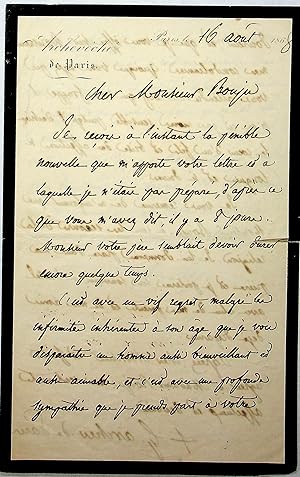 Archevêché
de Paris
Paris, le 16 août 186
Cher Monsieur Bouju
Je reçois à l'instant la pénible
nouvelle que m'apporte votre lettre et à
laquelle je n'étais pas préparé, d'après ce
que vous m'avez dit, il y a jours.
Monsieur votre père semblait devoir durer
encore quelque temps.
C'est avec un vif regret, malgré les
infirmités inhérentes à son âge que je vois
disparaître un homme aussi bienveillant et
aussi aimable, et c'est avec une profonde
sympathie que je prends part à votre